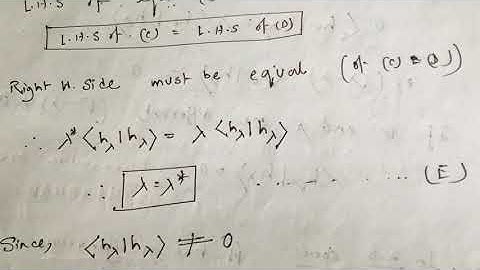 L.H.S of
L.H.S of (C) = L.H.S of (D)
Right H. Side must be equal (of (C) & D)
∴ λ* ⟨h_λ|h_λ⟩ = λ ⟨h_λ|h_λ⟩
∴ λ = λ* . . . . . . . . (E)
Since, ⟨h_λ|h_λ⟩ ≠ 0